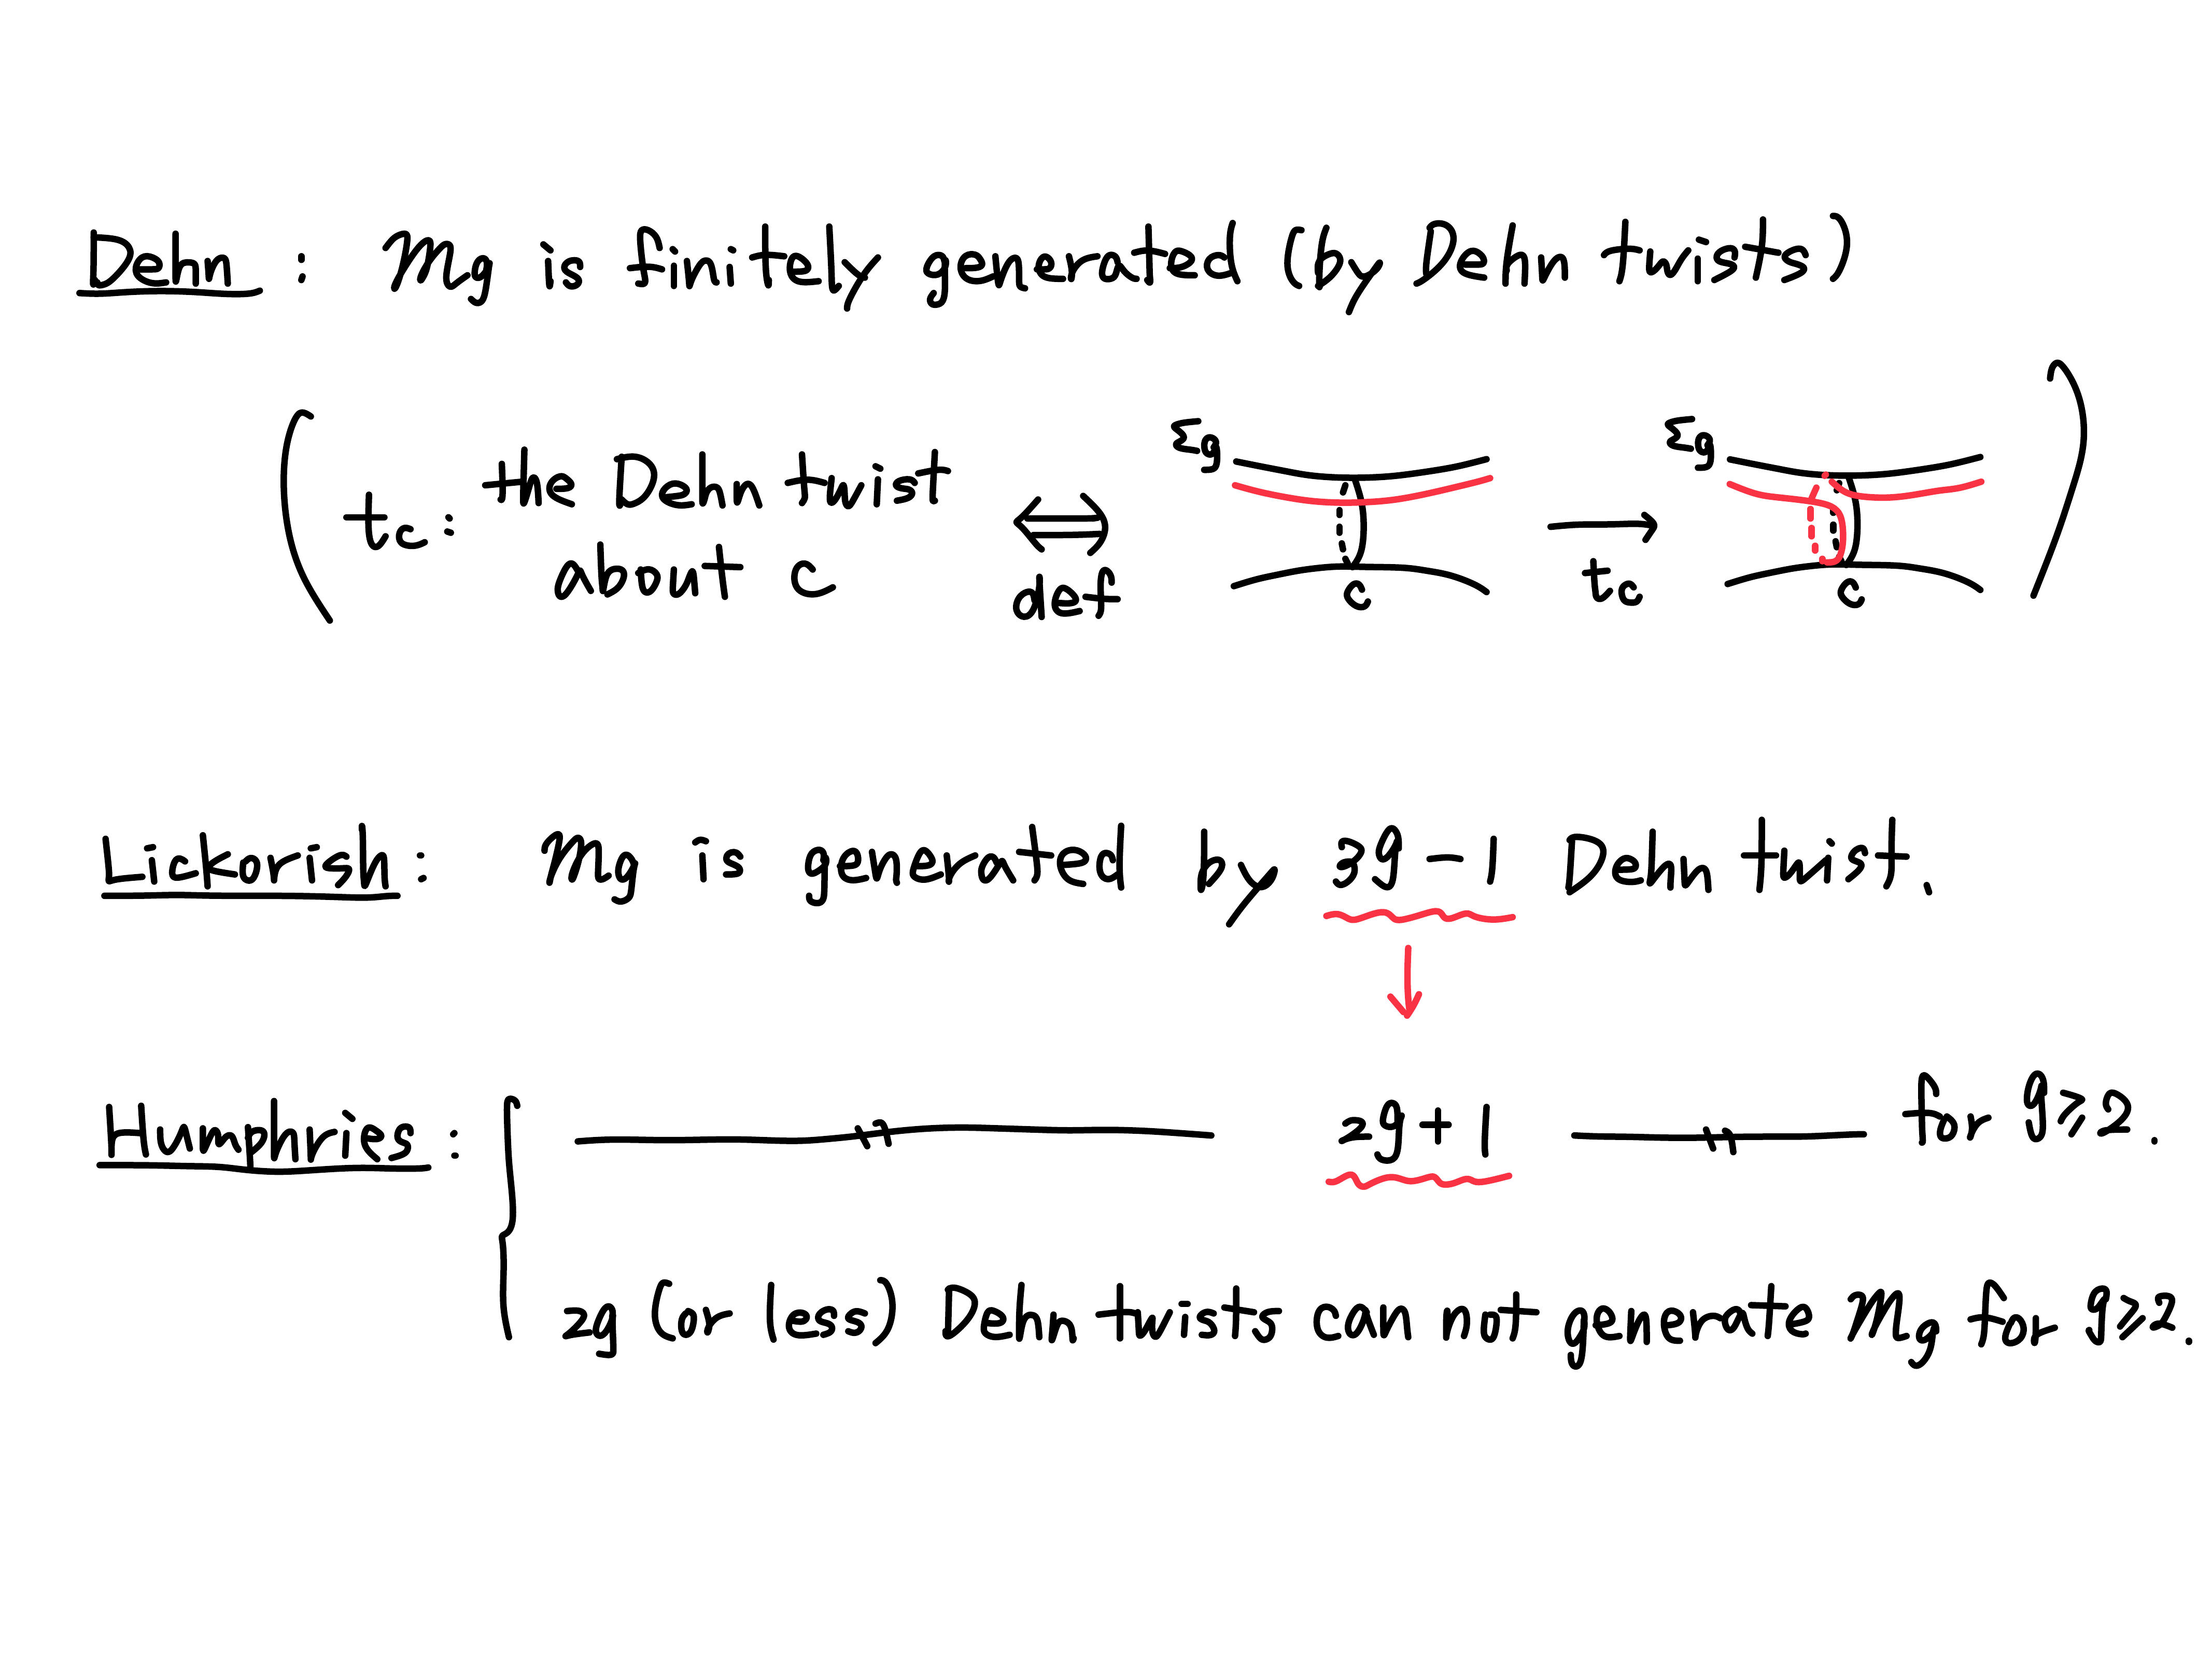 Dehn : Mg is finitely generated (by Dehn twists)
( tc: the Dehn twist about c ⟺ def Σg c → tc Σg c )
Lickorish: Mg is generated by 3g-1 Dehn twist.
↓
Humphries: { ——〃—— 2g+1 ——〃—— for g≥2.
2g (or less) Dehn twists can not generate Mg for g≥2.